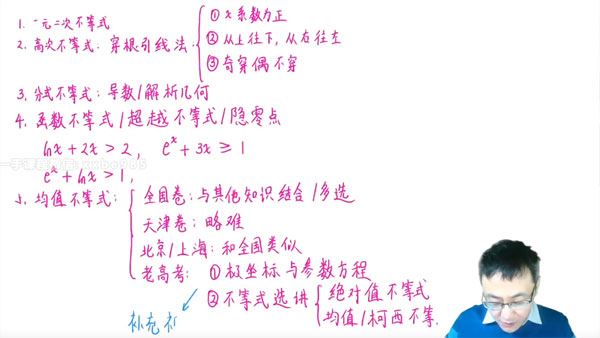 1. 一元二次不等式
2. 高次不等式：穿根引线法
① x系数为正
② 从上往下，从右往左
③ 奇穿偶不穿
3. 分式不等式：导数/解析几何
4. 函数不等式/超越不等式/隐零点
lnx+2x>2, eˣ+3x≥1
eˣ+lnx>1,
5. 均值不等式：
全国卷：与其他知识结合/多选
天津卷：略难
北京/上海：和全国类似
老高考：① 极坐标与参数方程
② 不等式选讲
绝对值不等式
均值/柯西不等.
补充